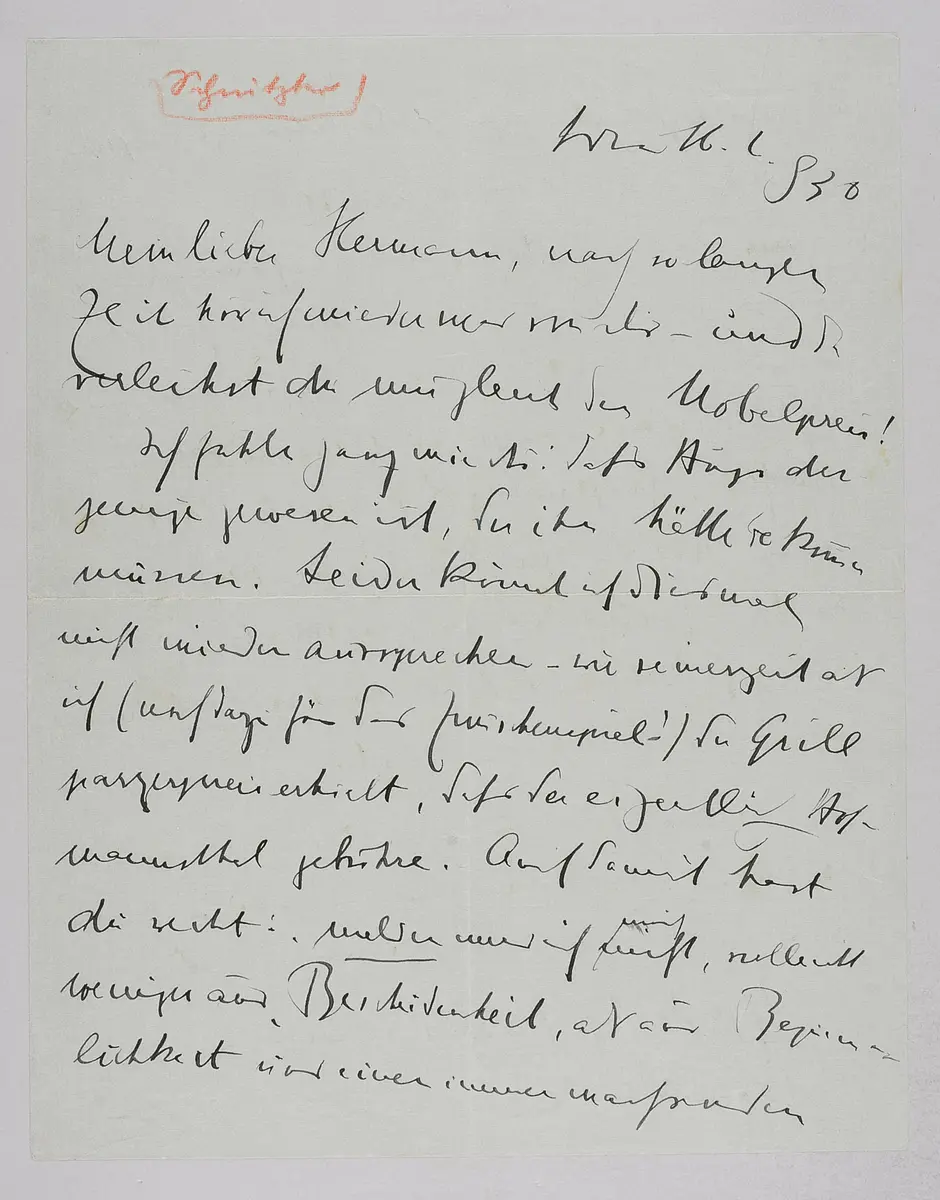 Schnitzler
Wien 16. 1.
930
Mein lieber Hermann, nach so langer
Zeit hör ich wieder was von dir – und da
verleihst du mir gleich den Nobelpreis!
Ich fühle ganz wie du: daß Hugo der
jenige gewesen ist, der ihn hätte bekommen
müssen. Leider könnt ich diesmal
nicht wieder aussprechen – wie seinerzeit als
ich (noch dazu für das Zwischenspiel!) den Grill
parzerpreis erhielt, daß der eigentlich Hof-
mannsthal gebühre. Auch damit hast
du recht: melden werd ich mich nicht, vielleicht
weniger aus Bescheidenheit, als aus Bequem
lichkeit und einer immer wachsenden